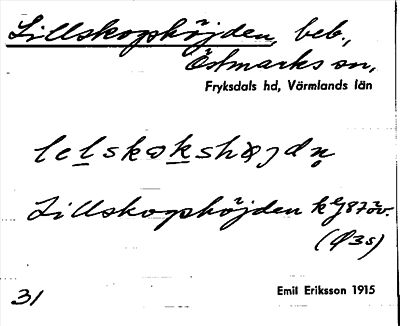 Lillskogshöjden, beb.,
Östmarks sn,
Fryksdals hd, Värmlands län
lelskɔkshøjdn̥
Lillskogshöjden kg 87öv.
(Ø3s)
31
Emil Eriksson 1915